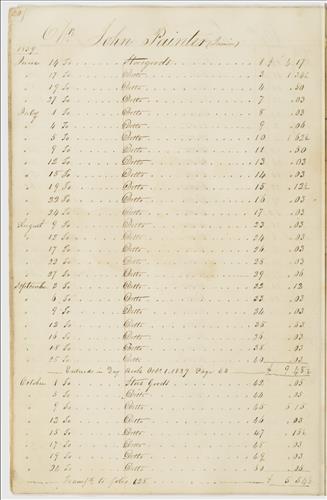 John Painter (Junior)
1839
June 14 To Storegoods 1 $ 4.17
" 17 To Ditto
" 19 To Ditto 4 .50
" 27 To Ditto 7 .03
July 1 To Ditto 8 .03
" 4 To Ditto 9 .06
" 5 To Ditto 10
" 9 To Ditto 11 .50
" 12 To Ditto 13 .03
" 15 To Ditto 14 .03
" 19 To Ditto 15 .12½
" 22 To Ditto 16 .03
" 24 To Ditto 17 .03
August 9 To Ditto 23 .03
" 12 To Ditto 24 .03
" 17 To Ditto 26 .03
" 23 To Ditto 28 .03
" 27 To Ditto 29 .06
September 2 To Ditto .12
" 6 To Ditto .03
" 9 To Ditto 34 .03
" 12 To Ditto
" 16 To Ditto .03
" 18 To Ditto 38 .03
" 25 To Ditto 40 .03
in Day Book Octr 1. 1839 Page $ 9.45½
October 1 To Store Goods 42 .05
" 5 To Ditto 44 .05
" 9 To Ditto 45
" 12 To Ditto 46 .03
" 15 To Ditto 47
" 17 To Ditto 48 .03
" 19 To Ditto 49 .03
" 24 To Ditto 50
to folio 125 $